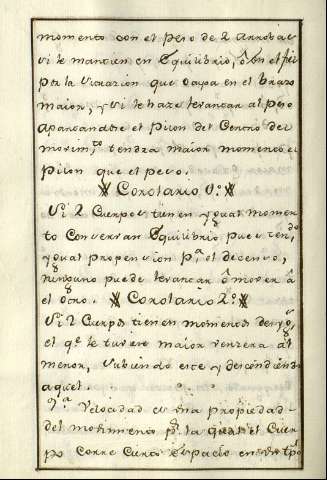 momento con el peso de 2 arrobas
si le mantien en Equilibrio, con el
por la situazion que ocupa en el brazo
maior, y si le haze levantar al peso
apartandose el Pilon del Centro del
movim.to tendra maior momento el
Pilon que el peso.
Corolario 1º
Si 2 Cuerpos tienen ygual momen
to conservan Equilibrio pues ten.do
ygual propension p.a el decenso,
ninguno puede levantar ô mover â
el otro. Corolario 2º
Si 2 Cuerpos tienen momentos desyg.s
el q.e le tuviere maior venzera al
menor, subiendo este y descendiendo
aquel.
9.a Velocidad es vna propiedad
del movimiento p.r la qual el Cuer
po corre cierto Espacio en tpo